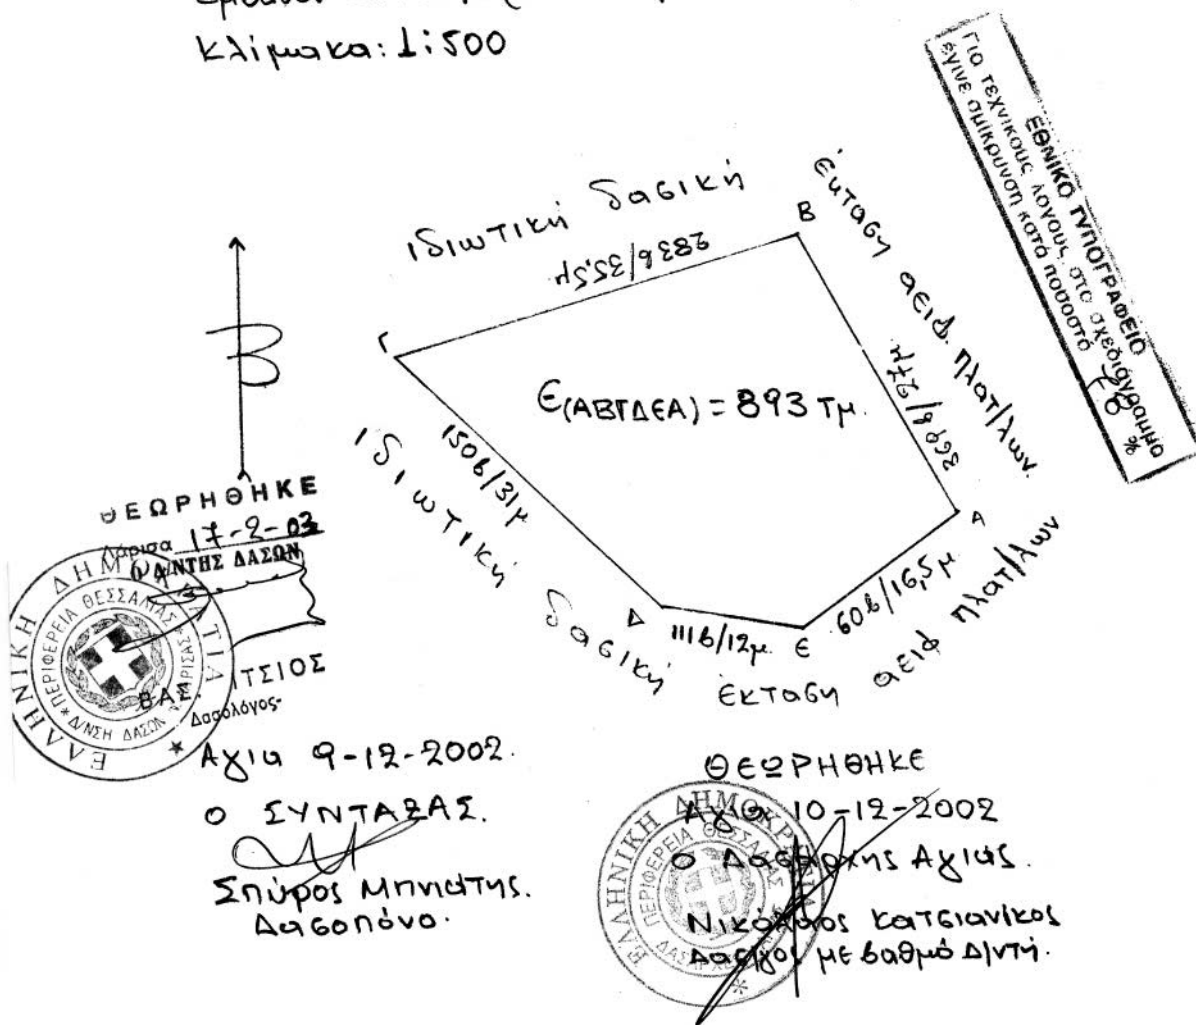 Κλίμακα: 1:500
ΕΘΝΙΚΟ ΤΥΠΟΓΡΑΦΕΙΟ
Για τεχνικούς λόγους, στο σχεδιάγραμμα
έγινε σμίκρυνση κατά ποσοστό 78 %
ιδιωτική δασική
έκταση αειφ. πλατ/λων.
283β/35,5μ
Β
Γ
Β
369β/27μ
Ε(ΑΒΓΔΕΑ) = 893 τμ.
150β/31μ
Α
60β/16,5μ
Δ
111β/12μ.
Ε
ιδιωτική δασική έκταση αειφ πλατ/λων
ΘΕΩΡΗΘΗΚΕ
Λάρισα 17-2-03
Ο Δ/ΝΤΗΣ ΔΑΣΩΝ
ΕΛΛΗΝΙΚΗ ΔΗΜΟΚΡΑΤΙΑ
ΠΕΡΙΦΕΡΕΙΑ ΘΕΣΣΑΛΙΑΣ
Δ/ΝΣΗ ΔΑΣΩΝ Ν. ΛΑΡΙΣΑΣ
ΒΑΣ. ΙΤΣΙΟΣ
Δασολόγος
Αγιά 9-12-2002.
Ο ΣΥΝΤΑΞΑΣ.
Σπύρος
Δασοπόνο.
ΘΕΩΡΗΘΗΚΕ
Αγιά 10-12-2002
Ο Δασάρχης Αγιάς.
Νικόλαος Κατσιανίκος
Δασ/γος με βαθμό Δ/ντή.
ΕΛΛΗΝΙΚΗ ΔΗΜΟΚΡΑΤΙΑ
ΠΕΡΙΦΕΡΕΙΑ ΘΕΣΣΑΛΙΑΣ